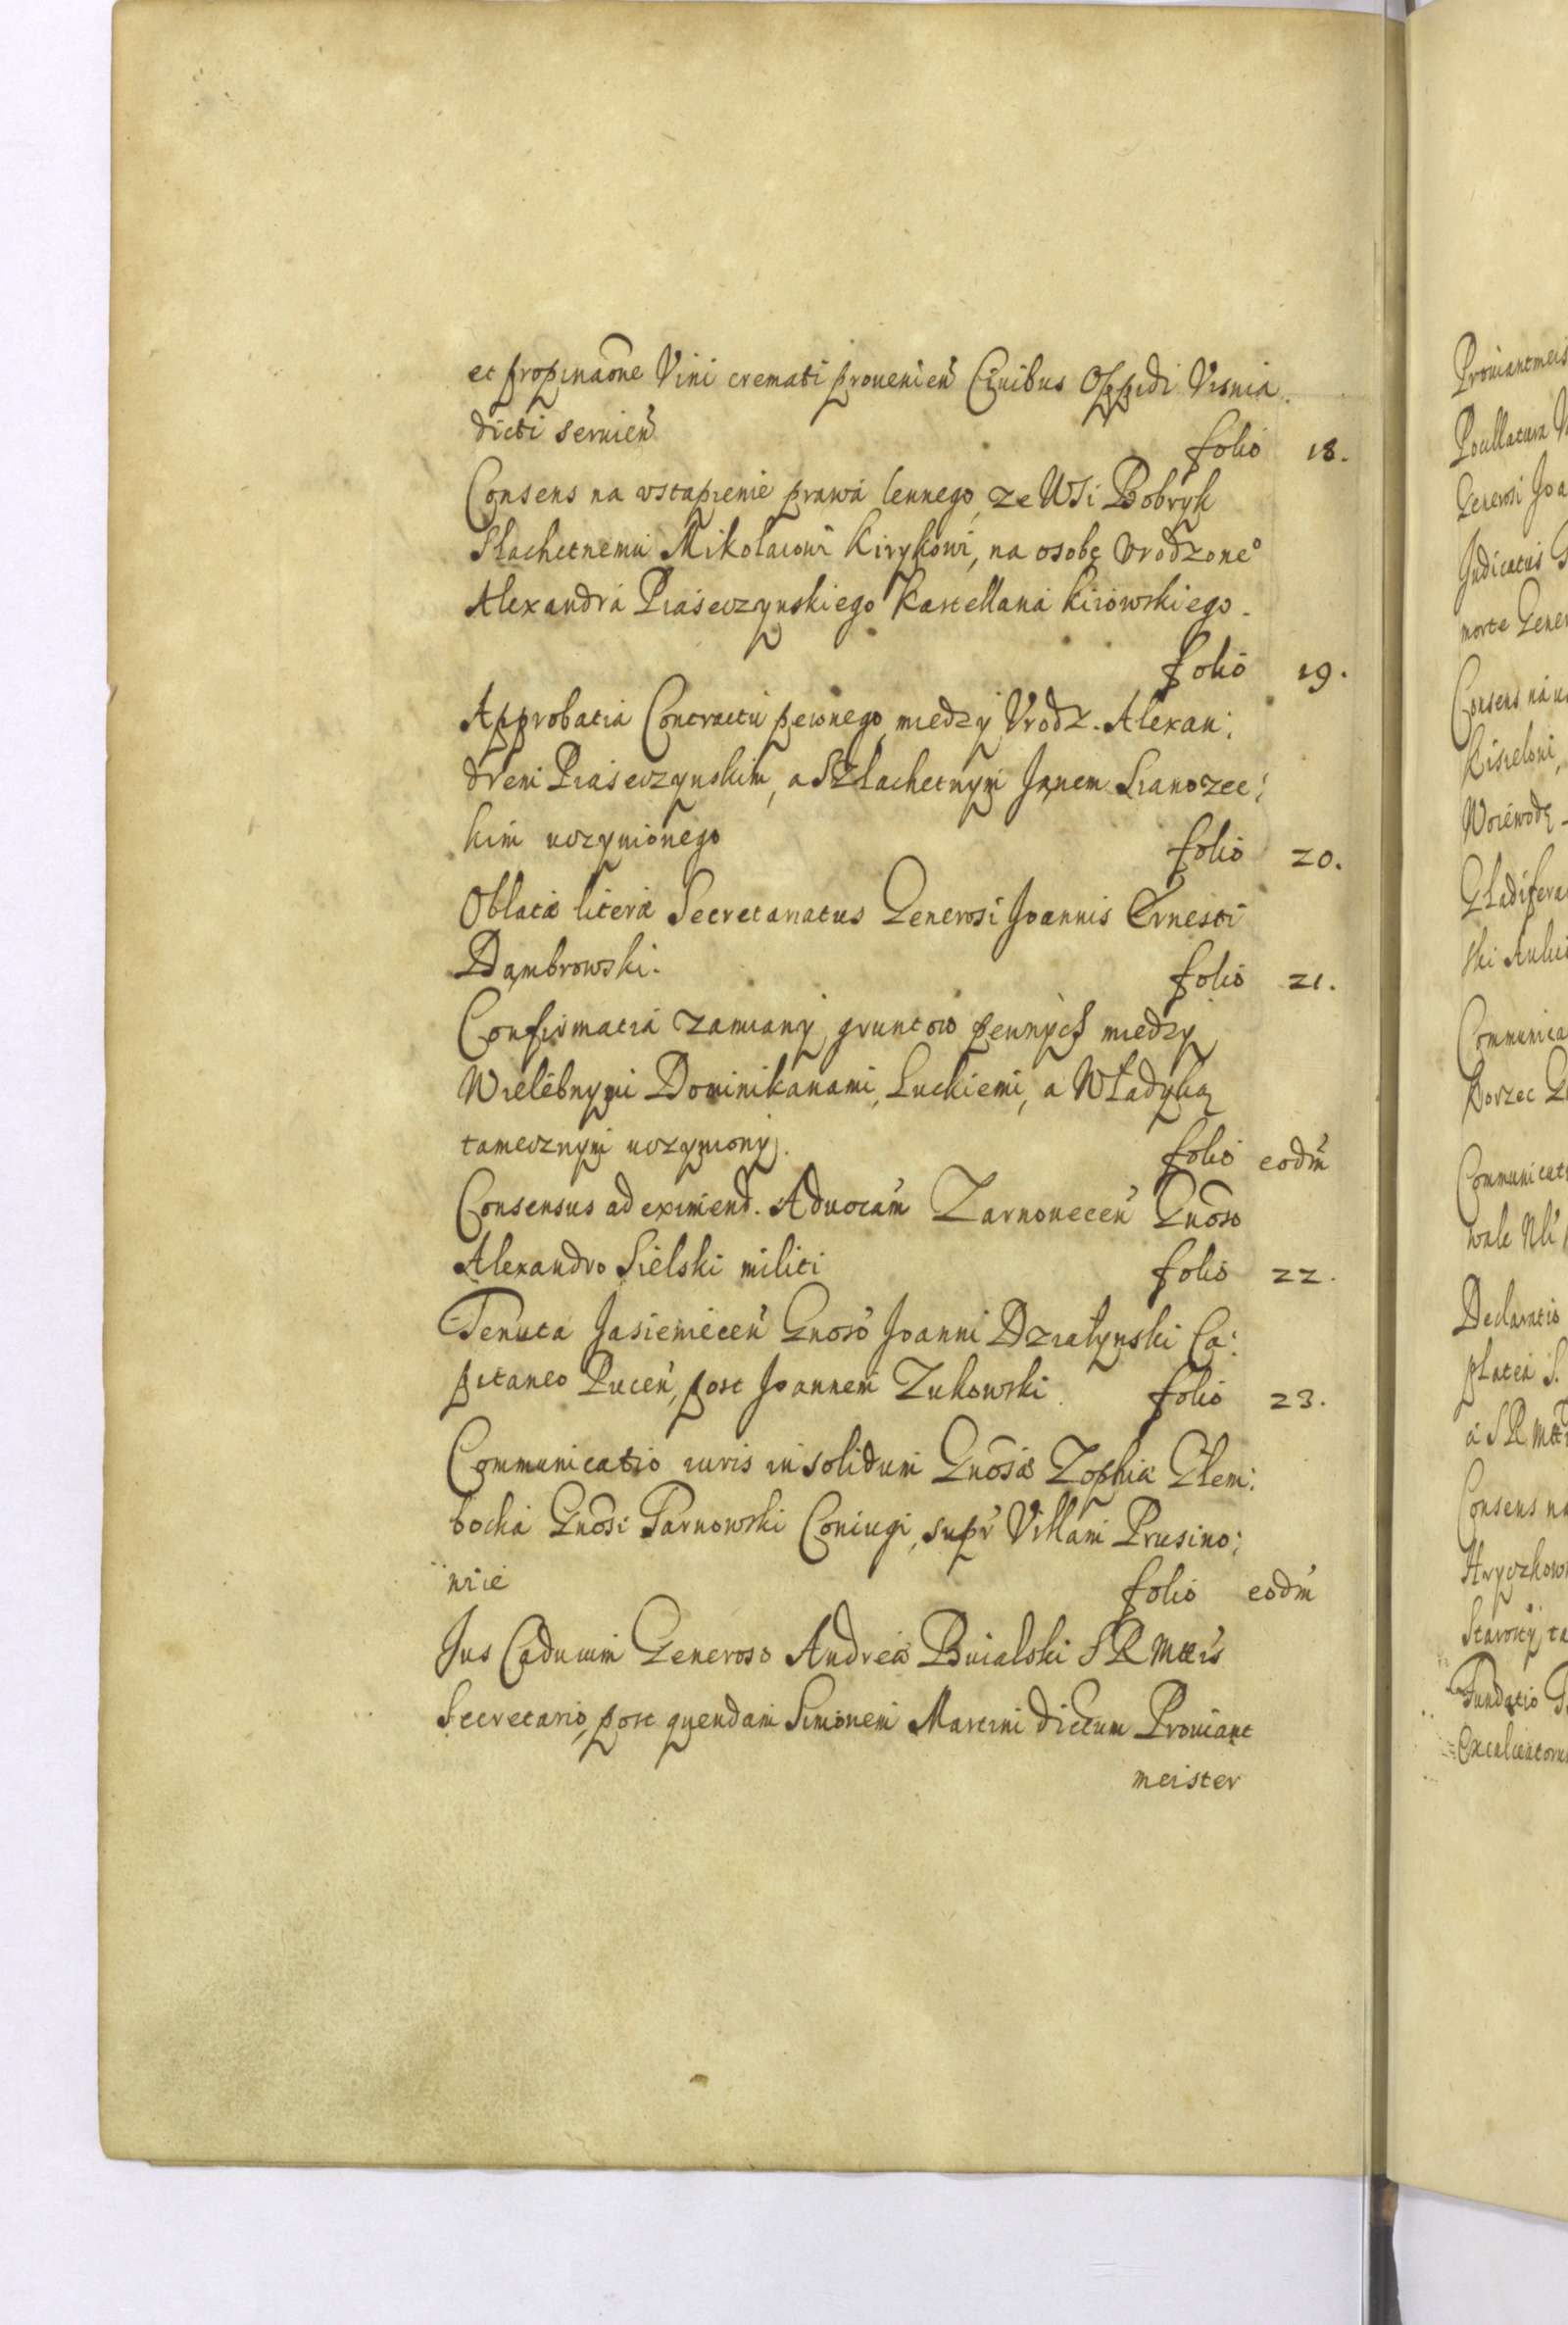 et propinaōne Vini cremati prouenień Ciuibus Oppidi Visnia
dicti seruień folio 18.
Consens na vstąpienie prawá lennego, ze Wsi Bobryk
Slachetnemu Mikołaiowi Kirykowi, na osobę Vrodzone°
Alexandrá Piaseczynskiego Kasztellaná Kiiowskiego.
folio 19.
Approbatia Contractu pewnego między Vrodz. Alexan:
drem Piaseczynskim, a Szlachetnym Janem Sianozec:
kim vczynionego folio 20.
Oblata litera Secretariatus Generosi Joannis Ernesti
Dąmbrowski. folio 21.
Confirmatiá zamiany gruntow pewnych między
Wielebnymi Dominikanami Łuckiemi, a Władyką
tamecznym vczyniony. folio eodḿ
Consensus ad eximend. Aduocam̃ Zarnoueceń Gnōso
Alexandro Sielski militi folio 22.
Tenuta Jasienieceń Gnoso Joanni Działynski Ca:
pitaneo Puceń, post Joannem Zukowski folio 23.
Communicatio iuris in solidum Gnōsæ Zophiæ Głem:
bocka Gnōsi Tarnowski Coniugi, supr Villam Prusino:
wie folio eodḿ
Jus Caducum Generoso Andreæ Buialski S R Mttis
Secretario, post quendam Simonem Martini dictum Prouiant
meister
Prouiantmeis
Generosi Joa
morte Gener
Kisieloni
Woiewodę
Gladifera
Communica
Korzec
Communicat
Declaratio
platea S.
Consens na
Fundatio